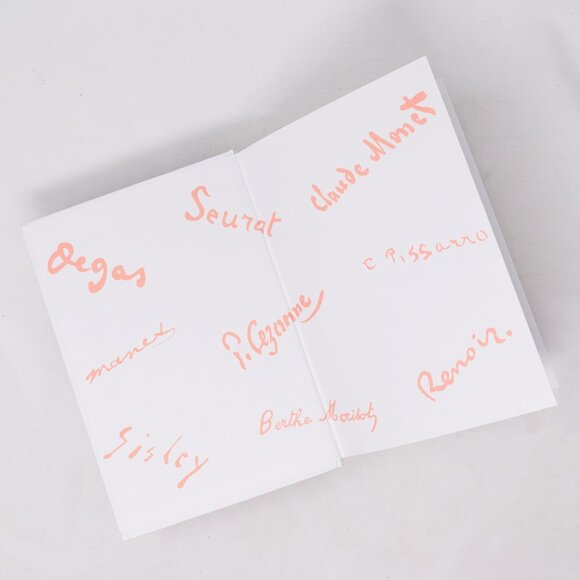 Seurat
Claude Monet
Degas
C Pissarro
manet
P. Cezanne
Renoir.
Berthe Morisot
Sisley